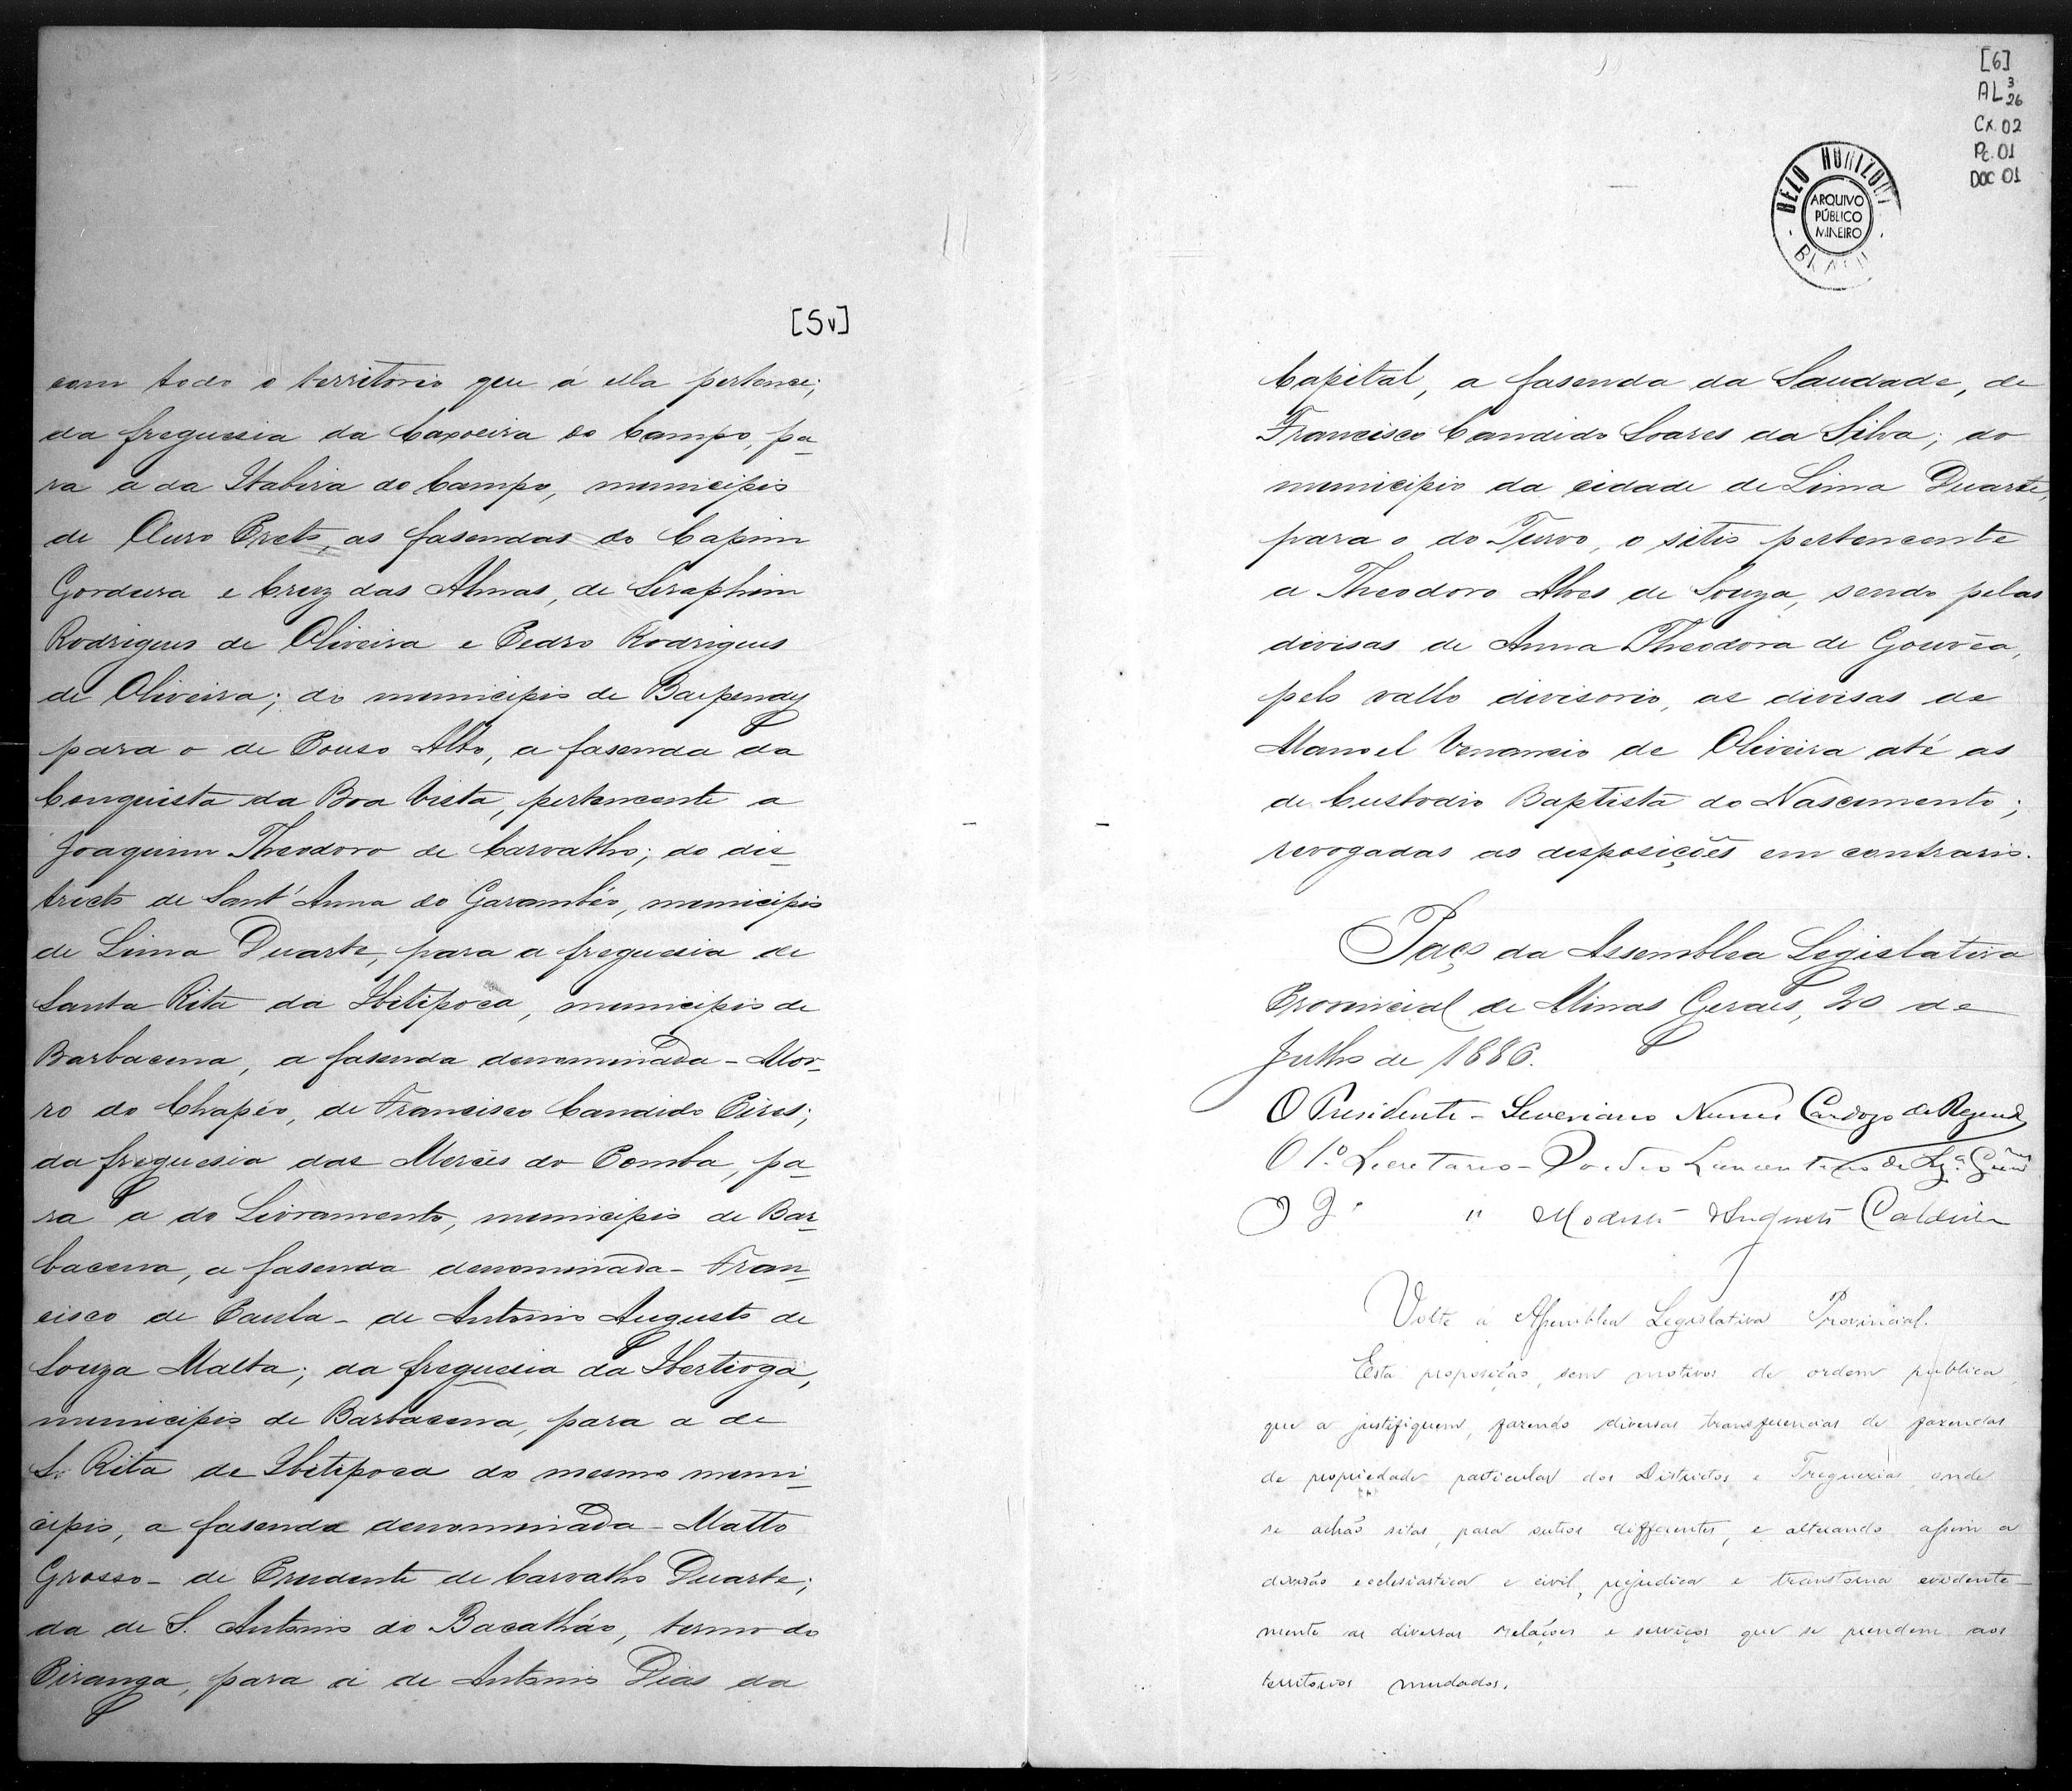 [5v]
com todo o territorio que á ella pertence;
da freguesia da Caxoeira do Campo, pa-
ra a da Itabira do Campo, municipio
de Ouro Preto, as fasendas do Capim
Gordura e Cruz das Almas, de Seraphim
Rodrigues de Oliveira e Pedro Rodrigues
de Oliveira; do municipio de Baependy
para o de Pouso Alto, a fasenda da
Conquista da Boa Vista, pertencente a
Joaquim Theodoro de Carvalho; do dis-
tricto de Sant'Anna do Garambéo, municipio
de Lima Duarte, para a freguesia de
Santa Rita da Ibitipoca, municipio de
Barbacena, a fasenda denominada - Mor-
ro do Chapéo, de Francisco Candido Pires;
da freguesia das Mercês do Pomba, pa-
ra a do Livramento, municipio de Bar-
bacena, a fasenda denominada - Fran-
cisco de Paula - de Antonio Augusto de
Souza Malta; da freguesia da Ibertioga,
municipio de Barbacena, para a de
S. Rita de Ibitipoca do mesmo muni-
cipio, a fasenda denominada - Matto
Grosso - de Prudente de Carvalho Duarte;
da de S. Antonio do Bacalháo, termo do
Piranga, para á de Antonio Dias da
[6]
AL 3 26
Cx. 02
Pc. 01
DOC 01
BELO HORIZONTE
ARQUIVO
PÚBLICO
MINEIRO
BRASIL
Capital, a fasenda da Saudade, de
Francisco Candido Soares da Silva; do
municipio da cidade de Lima Duarte,
para o do Turvo, o sitio pertencente
a Theodoro Alves de Souza, sendo pelas
divisas de Anna Theodora de Gouvêa,
pelo vallo divisorio, as divisas de
Manoel Venancio de Oliveira até as
de Custodio Baptista do Nascimento;
revogadas as disposições em contrario.
Paço da Assemblea Legislativa
Provincial de Minas Geraes, 20 de
Julho de 1886.
O Presidente - Severiano Nunes Cardozo de Rezende
O 1.º Secretario -
O 2º " Modesto Augusto Caldeira
Volte á Assemblea Legislativa Provincial.
Esta proposição, sem motivos de ordem publica
que a justifiquem, fazendo diversas transferencias de fazendas
de propriedade particular dos Districtos e Freguezias onde
se achão sitas, para outros differentes, e alterando assim a
divisão ecclesiastica e civil, prejudica e transtorna evidente-
mente as diversas relações e serviços que se prendem aos
territorios mudados.